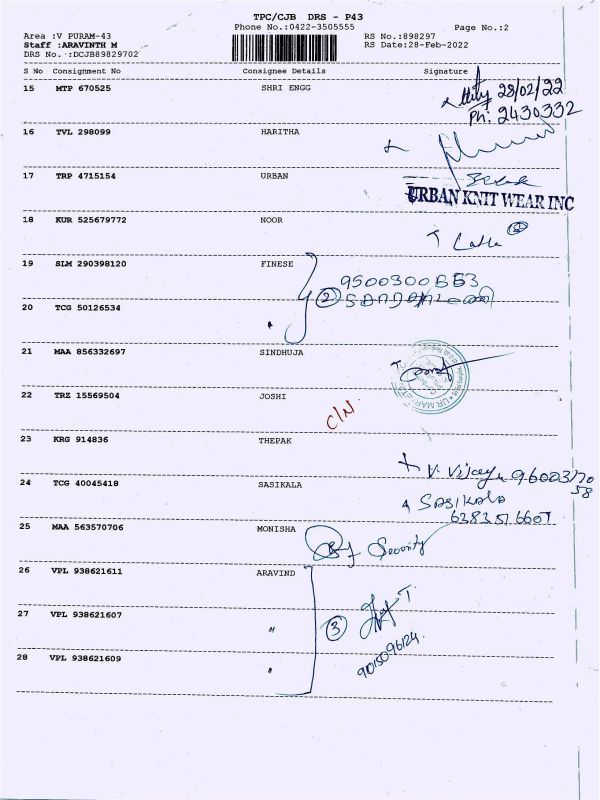 TPC/CJB DRS - P43
Phone No.:0422-3505555
Page No.:2
Area :V PURAM-43
RS No.:898297
Staff :ARAVINTH M
RS Date:28-Feb-2022
DRS No. :DCJB89829702
S No Consignment No Consignee Details Signature
15 MTP 670525 SHRI ENGG
28/02/22
Ph: 2430332
16 TVL 298099 HARITHA
17 TRP 4715154 URBAN
URBAN KNIT WEAR INC
18 KUR 525679772 NOOR
19 SLM 290398120 FINESE
2
20 TCG 50126534 "
21 MAA 856332697 SINDHUJA
22 TRZ 15569504 JOSHI
C/N
23 KRG 914836 THEPAK
V. Vijay
24 TCG 40045418 SASIKALA
SASIKALA
6383516607
25 MAA 563570706 MONISHA
By Security
26 VPL 938621611 ARAVIND
27 VPL 938621607 "
3
28 VPL 938621609 "